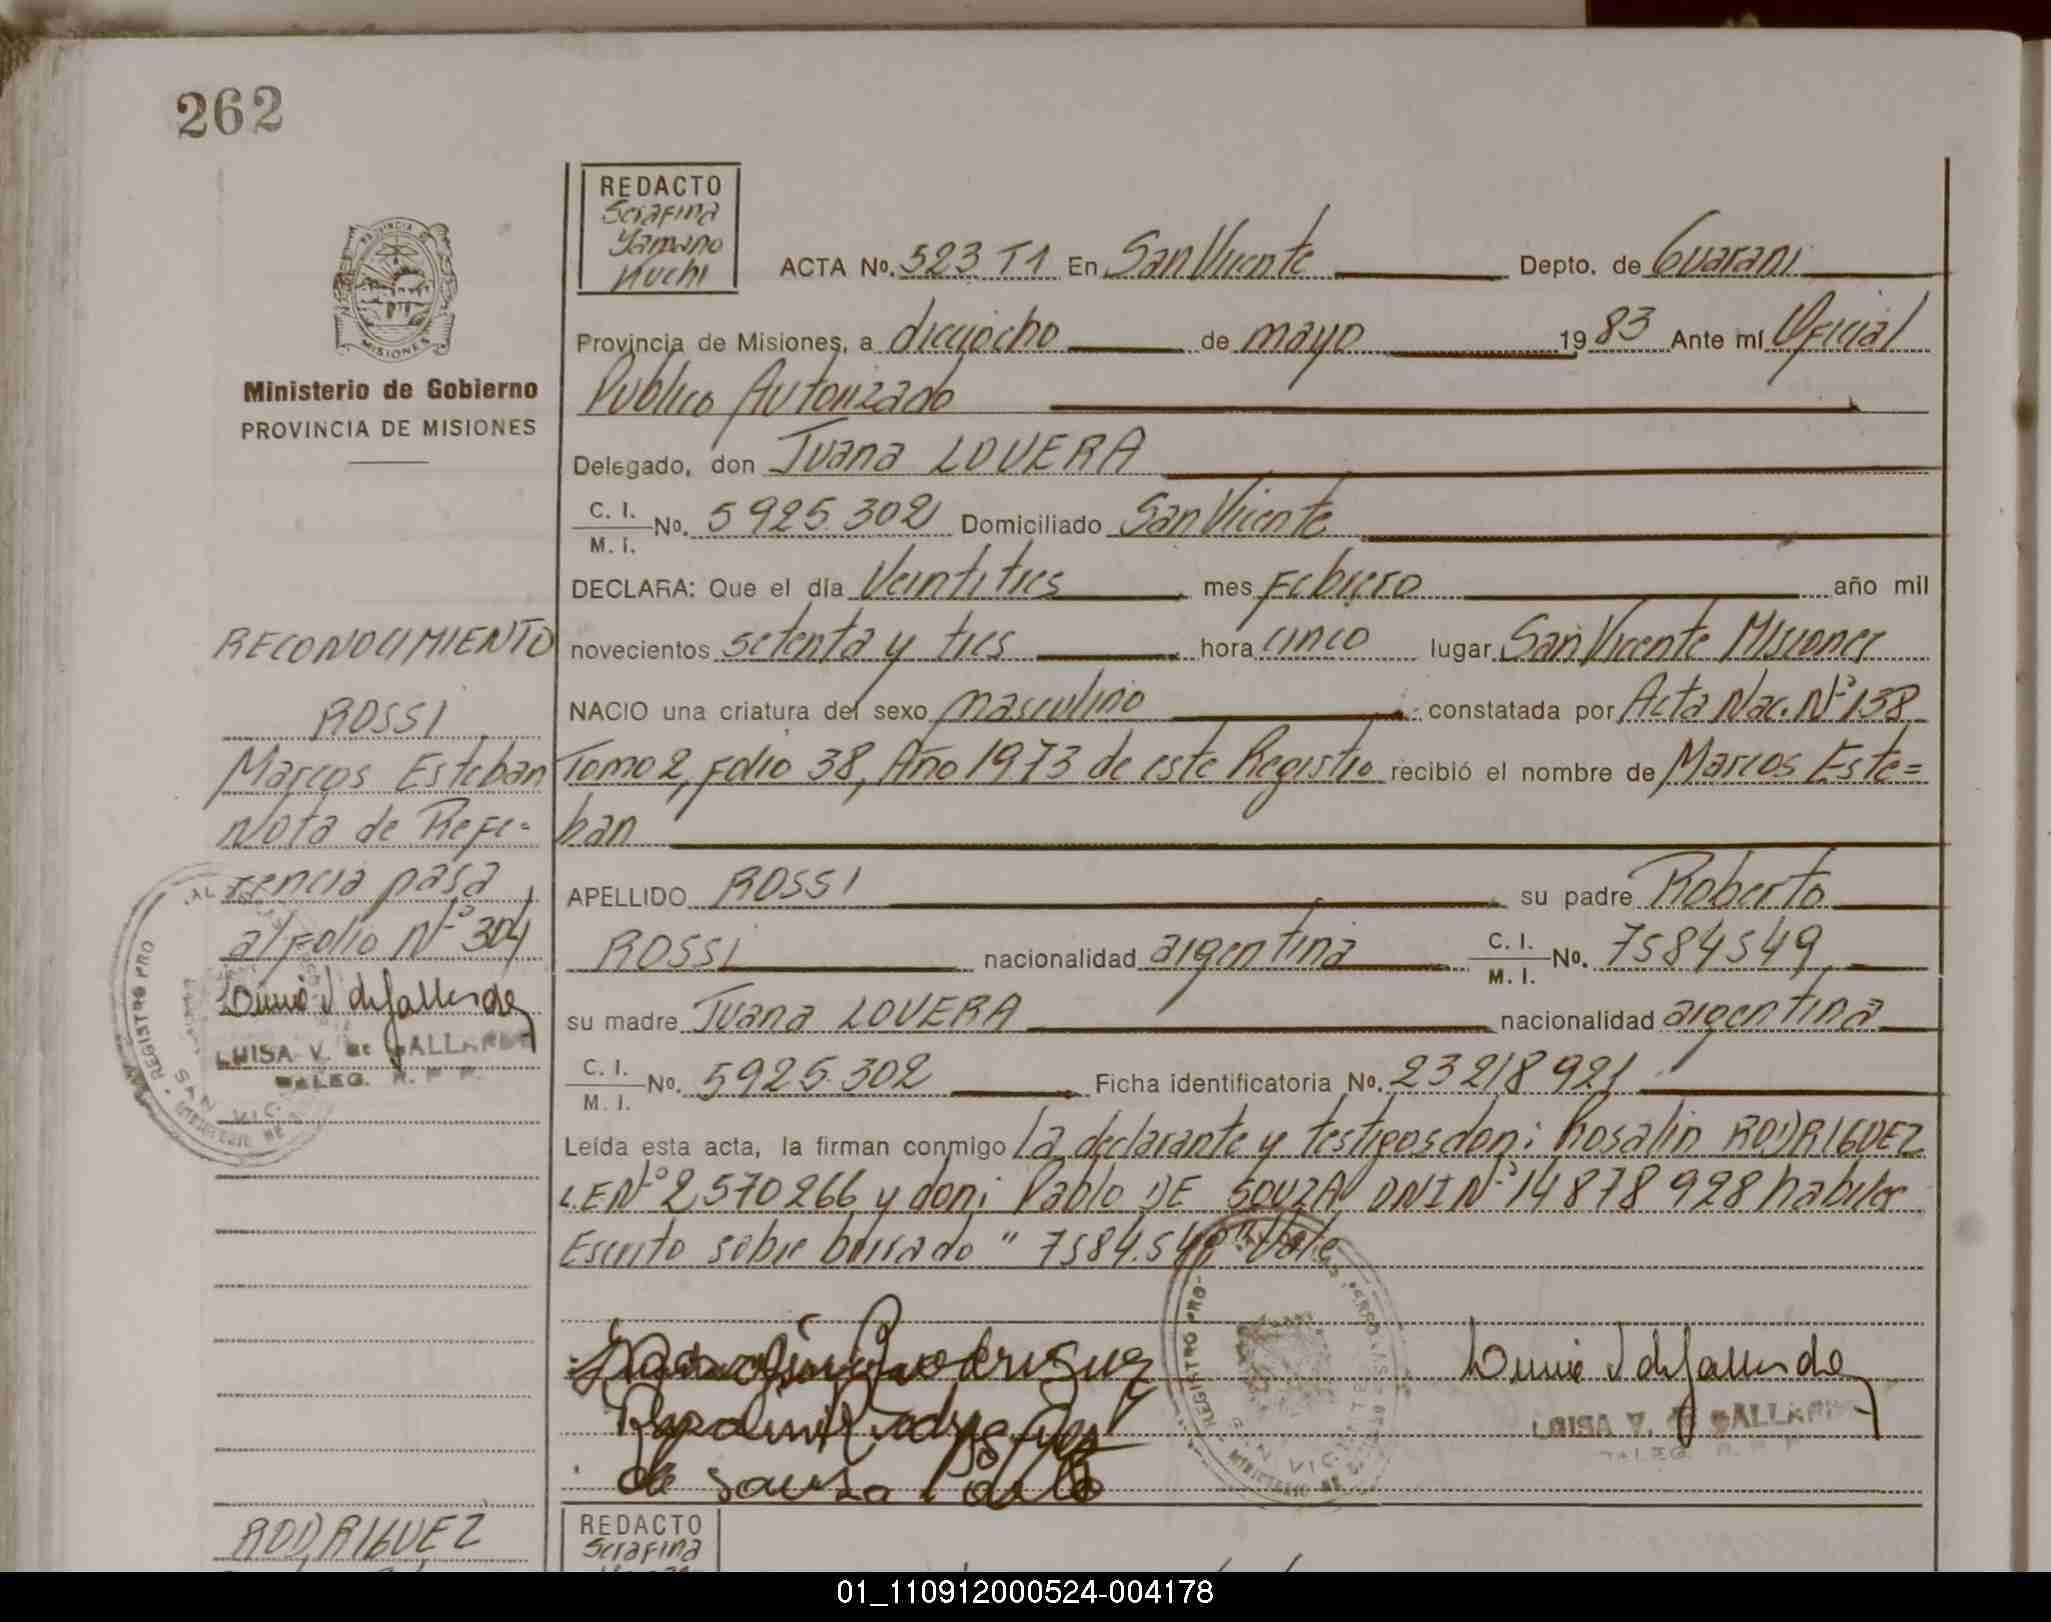 262
REDACTO
Serafina
Yamano
Kuchi
ACTA No. 523 T1 En San Vicente Depto. de Guarani
Provincia de Misiones, a dieciocho de mayo 1983 Ante mí Oficial
Publico Autorizado
MISIONES
Ministerio de Gobierno
PROVINCIA DE MISIONES
Delegado, don Juana LOVERA
C. I.
M. I. No. 5925.302 Domiciliado San Vicente
DECLARA: Que el día Veintitres mes Febrero año mil
novecientos setenta y tres hora cinco lugar San Vicente Misiones
NACIO una criatura del sexo masculino constatada por Acta Nac. Nº 138
Tomo 2, Folio 38, Año 1973 de este Registro recibió el nombre de Marcos Este=
ban
APELLIDO ROSSI su padre Roberto
ROSSI nacionalidad argentina C. I.
M. I. No. 7584549
su madre Juana LOVERA nacionalidad argentina
C. I.
M. I. No. 5925.302 Ficha identificatoria No. 23218921
Leída esta acta, la firman conmigo la declarante y testigos don: Rosalin RODRIGUEZ
L.E Nº 2570266 y don: Pablo DE SOUZA DNI Nº 14878928 habiles
Escrito sobre borrado "7584.549" Vale
RECONOCIMIENTO
ROSSI
Marcos Esteban
Nota de Refe=
rencia pasa
al Folio Nº 304
LUISA V. de GALLARDO
DELEG. R. P. P.
REGISTRO PRO
SAN VIC
MINISTERIO DE
REGISTRO PRO
SAN VICENTE
MINISTERIO DE
LUISA V. de GALLARDO
DELEG. R. P. P.
de Souza Pablo
RODRIGUEZ
REDACTO
Serafina
01_110912000524-004178